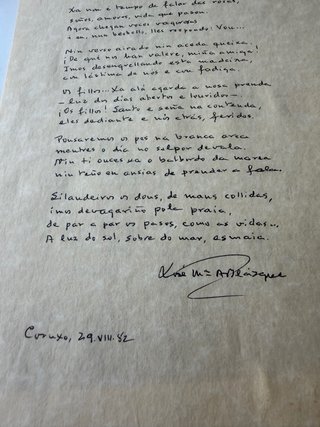 Xa non é tempo de falar das rosas,
soños, amores, vida que pasou.
Agora chegan voces vagarosas
e eu, nun bulebule, lles respondo: Vou...
Nin verso airado nin aceda queixa.
¡De qué nos han valere, miña amiga!
Imos desengrellando esta madeixa,
con lástima de nos e con fadiga.
Os fillos... Xa alá agarda a nosa prenda
—luz dos días abertos e louridos—.
¡Os fillos! Santo e seña na contenda,
eles dediante e nós atrás, feridos.
Pousaremos os pes na branca area
mentres o día no solpor devala.
Nin ti ouces xa o balbordo da marea
nin teño eu ansias de prender a fala.
Silandeiros os dous, de mans collidas,
imos devagariño pola praia,
de par a par os pasos, como as vidas...
A luz do sol, sobre do mar, esmaia.
Xosé Mª A. Blázquez
Coruxo, 29.VIII.82